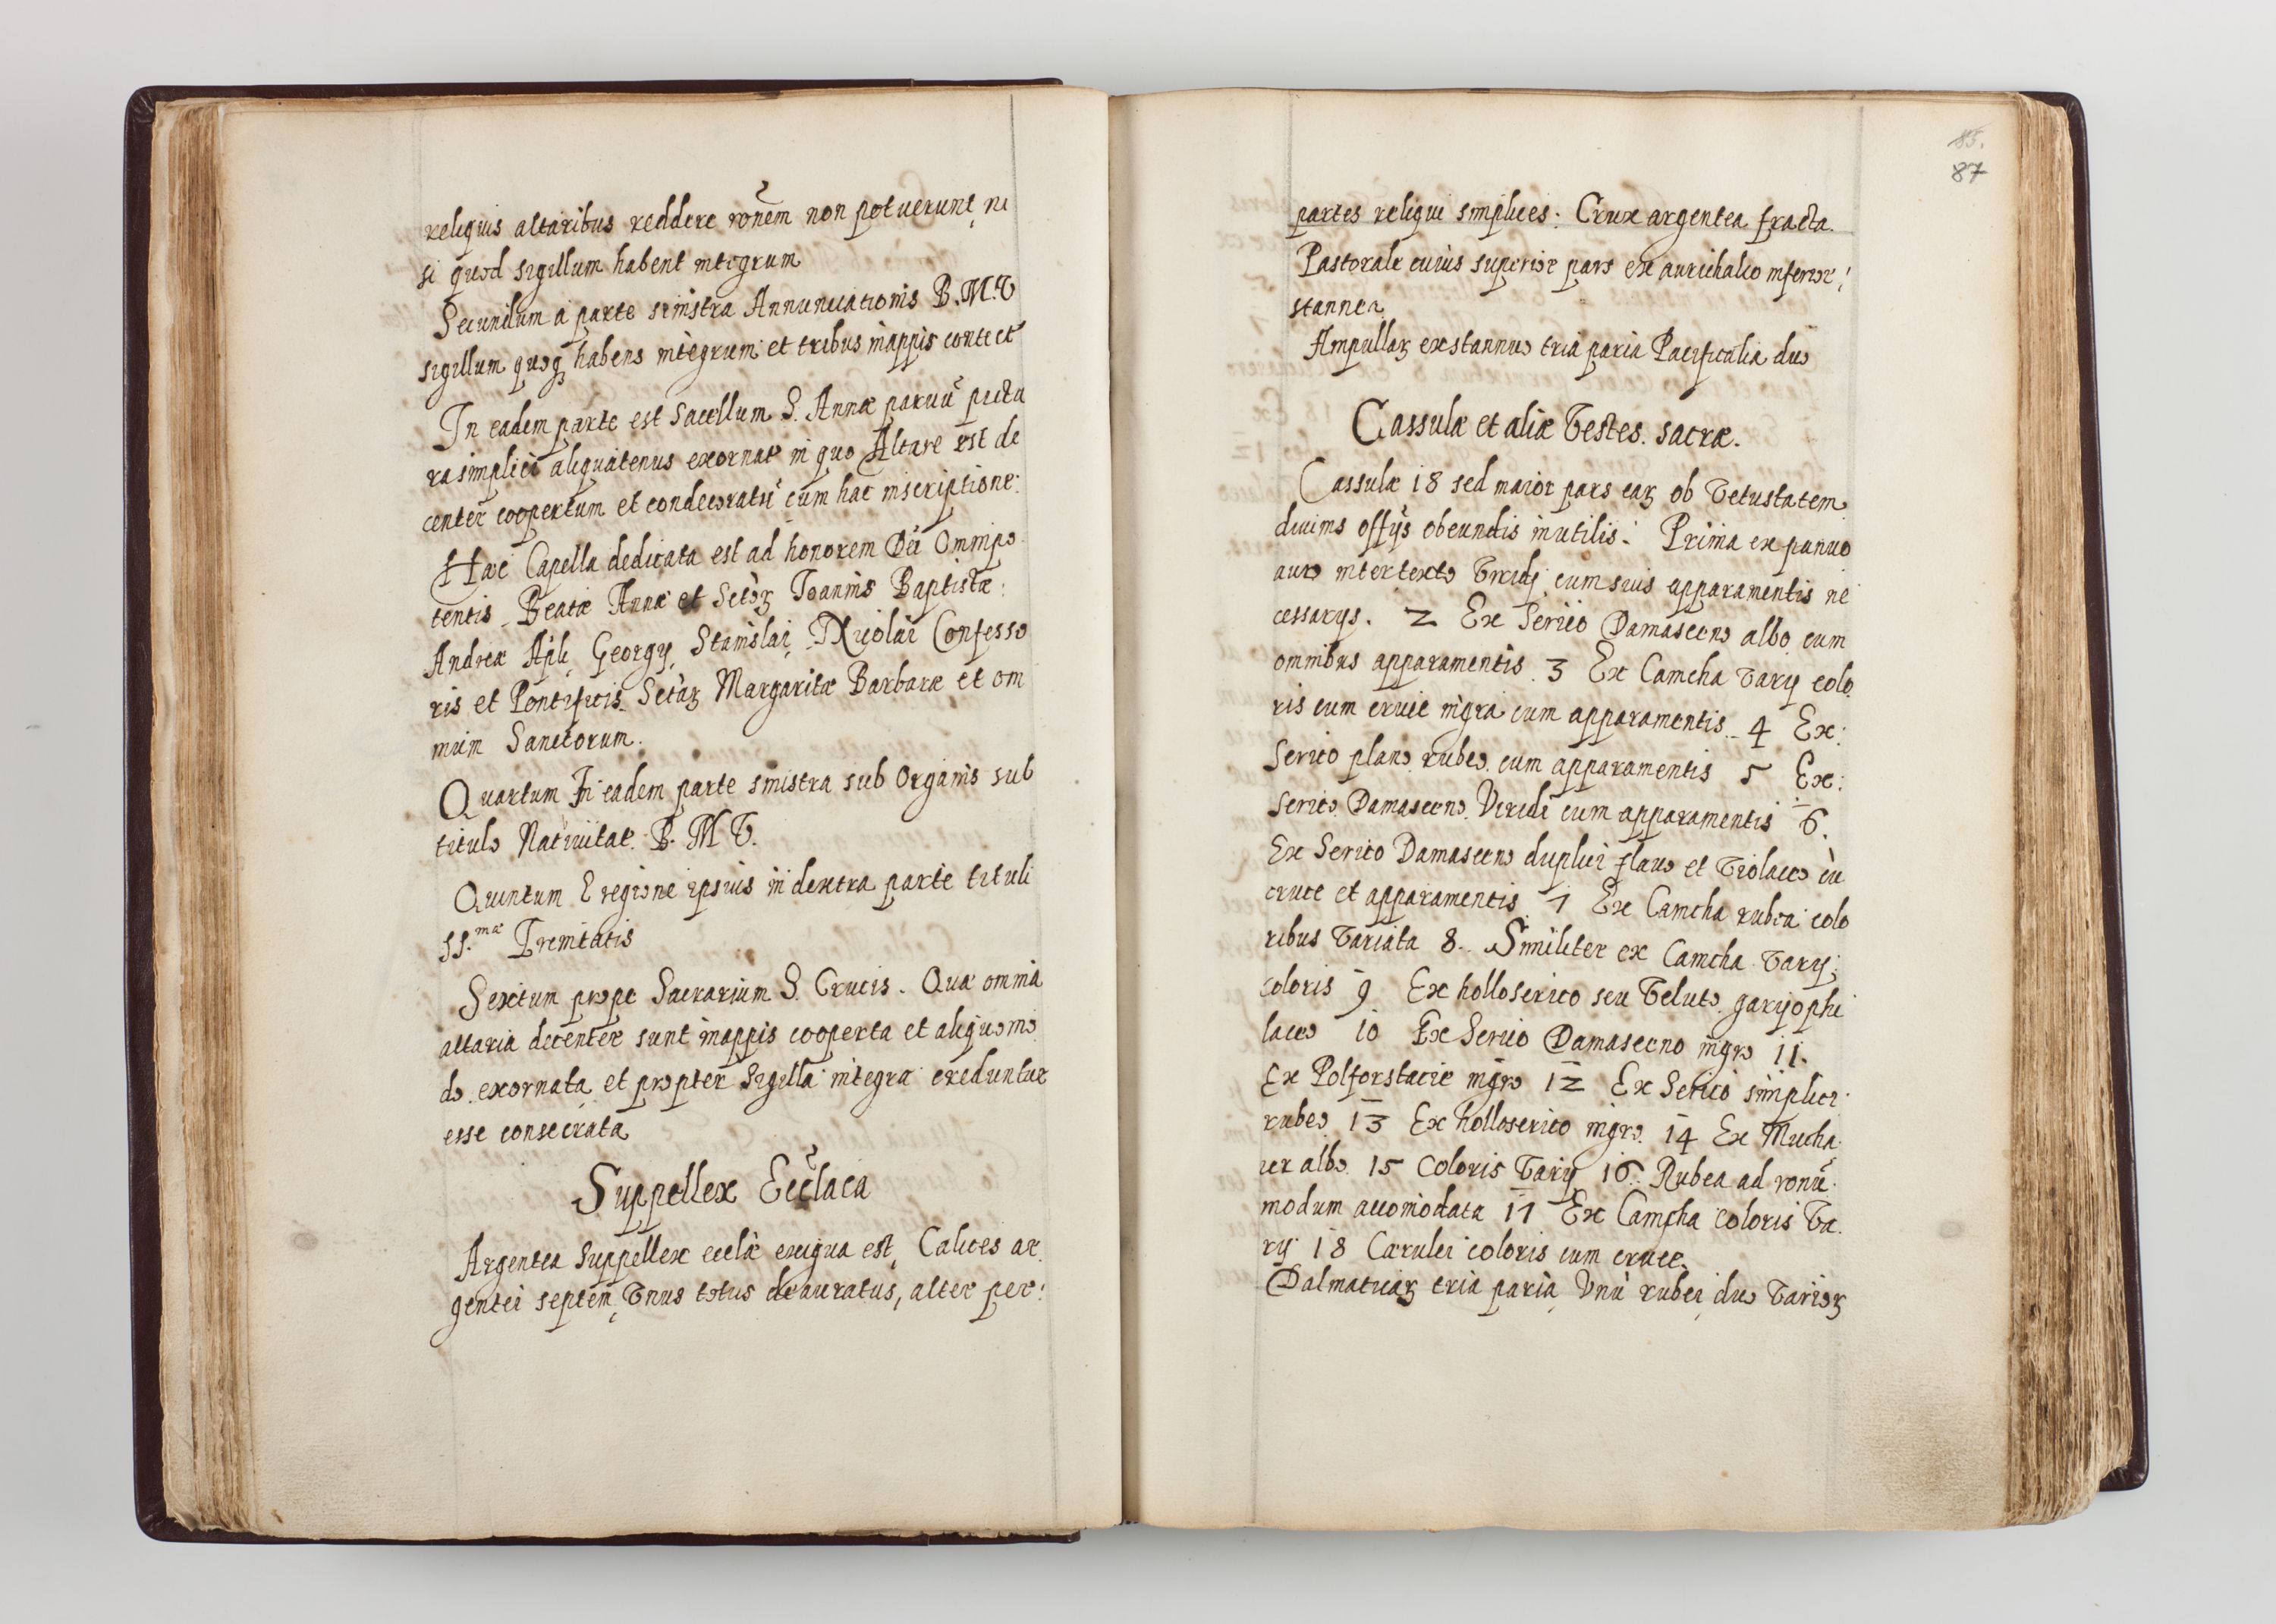 reliquis altaribus reddere ronem non potuerunt, ni
si quod sigillum habent integrum
Secundum á parte sinistra Annunciationis B.M.V
sigillum quoq habens integrum et tribus mappis contect
In eadem parte est Sacellum S. Annæ paruũ pictu
ra simplici aliquatenus exornat in quo Altare est de
center coopertum et condecoratũ cum hac inscriptione:
Hæc Capella dedicata est ad honorem Dei Omnipo
tentis Beatæ Annæ et Sctorꝝ Joannis Baptistæ:
Andreæ Apli, Georgij, Stanislai, Nicolai Confesso
ris et Pontificis Sctarꝝ Margaritæ Barbaræ et om
nium Sanctorum.
Quartum In eadem parte sinistra sub Organis sub
titulo Natiuitat. B. M V.
Quintum E regione ipsius in dextra parte tituli
SS.mæ Trinitatis
Sextum prope Sacrarium S. Crucis. Quæ omnia
altaria decenter sunt mappis cooperta et aliquomo
do exornata, et propter Sigilla integra creduntur
esse consecrata
Suppellex Ecclaca
Argentea Suppellex ecclæ exigua est, Calices ar
gentei septem, Vnus totus deauratus, alter per:
85.
87
partes reliqui simplices. Crux argentea fracta.
Pastorale cuius superior pars ex aurichalco inferior:
stannea.
Ampullarꝝ ex stanno tria paria Pacificalia duo
Cassulæ et aliæ Vestes sacræ.
Cassulæ 18 sed maior pars earꝝ ob Vetustatem
diuinis offijs obeundis inutilis: Prima ex panno
auro intertexto Viridj cum suis apparamentis ne
cessarijs. 2 Ex Serico Damasceno albo cum
omnibus apparamentis 3 Ex Camcha Varij colo
ris cum cruce nigra cum apparamentis 4 Ex:
Serico plano rubeo cum apparamentis 5 Ex:
Serico Damasceno Viridi cum apparamentis 6.
Ex Serico Damasceno duplici flauo et Violaceo cũ
cruce et apparamentis 7 Ex Camcha rubea colo
ribus Variata 8. Similiter ex Camcha Varij:
coloris 9 Ex holloserico seu Veluto garyophi
laceo 10 Ex Serico Damasceno nigro 11.
Ex Polforstacie nigro 12 Ex Serico simplici
rubeo 13 Ex holloserico nigro 14 Ex Mucha
ier albo 15 Coloris Varij 16. Rubea ad ronũ
modum accomodata 17 Ex Camcha coloris Va
rij 18 Cærulei coloris cum cruce.
Dalmaticarꝝ tria paria, Vnũ rubei, duo Variorꝝ